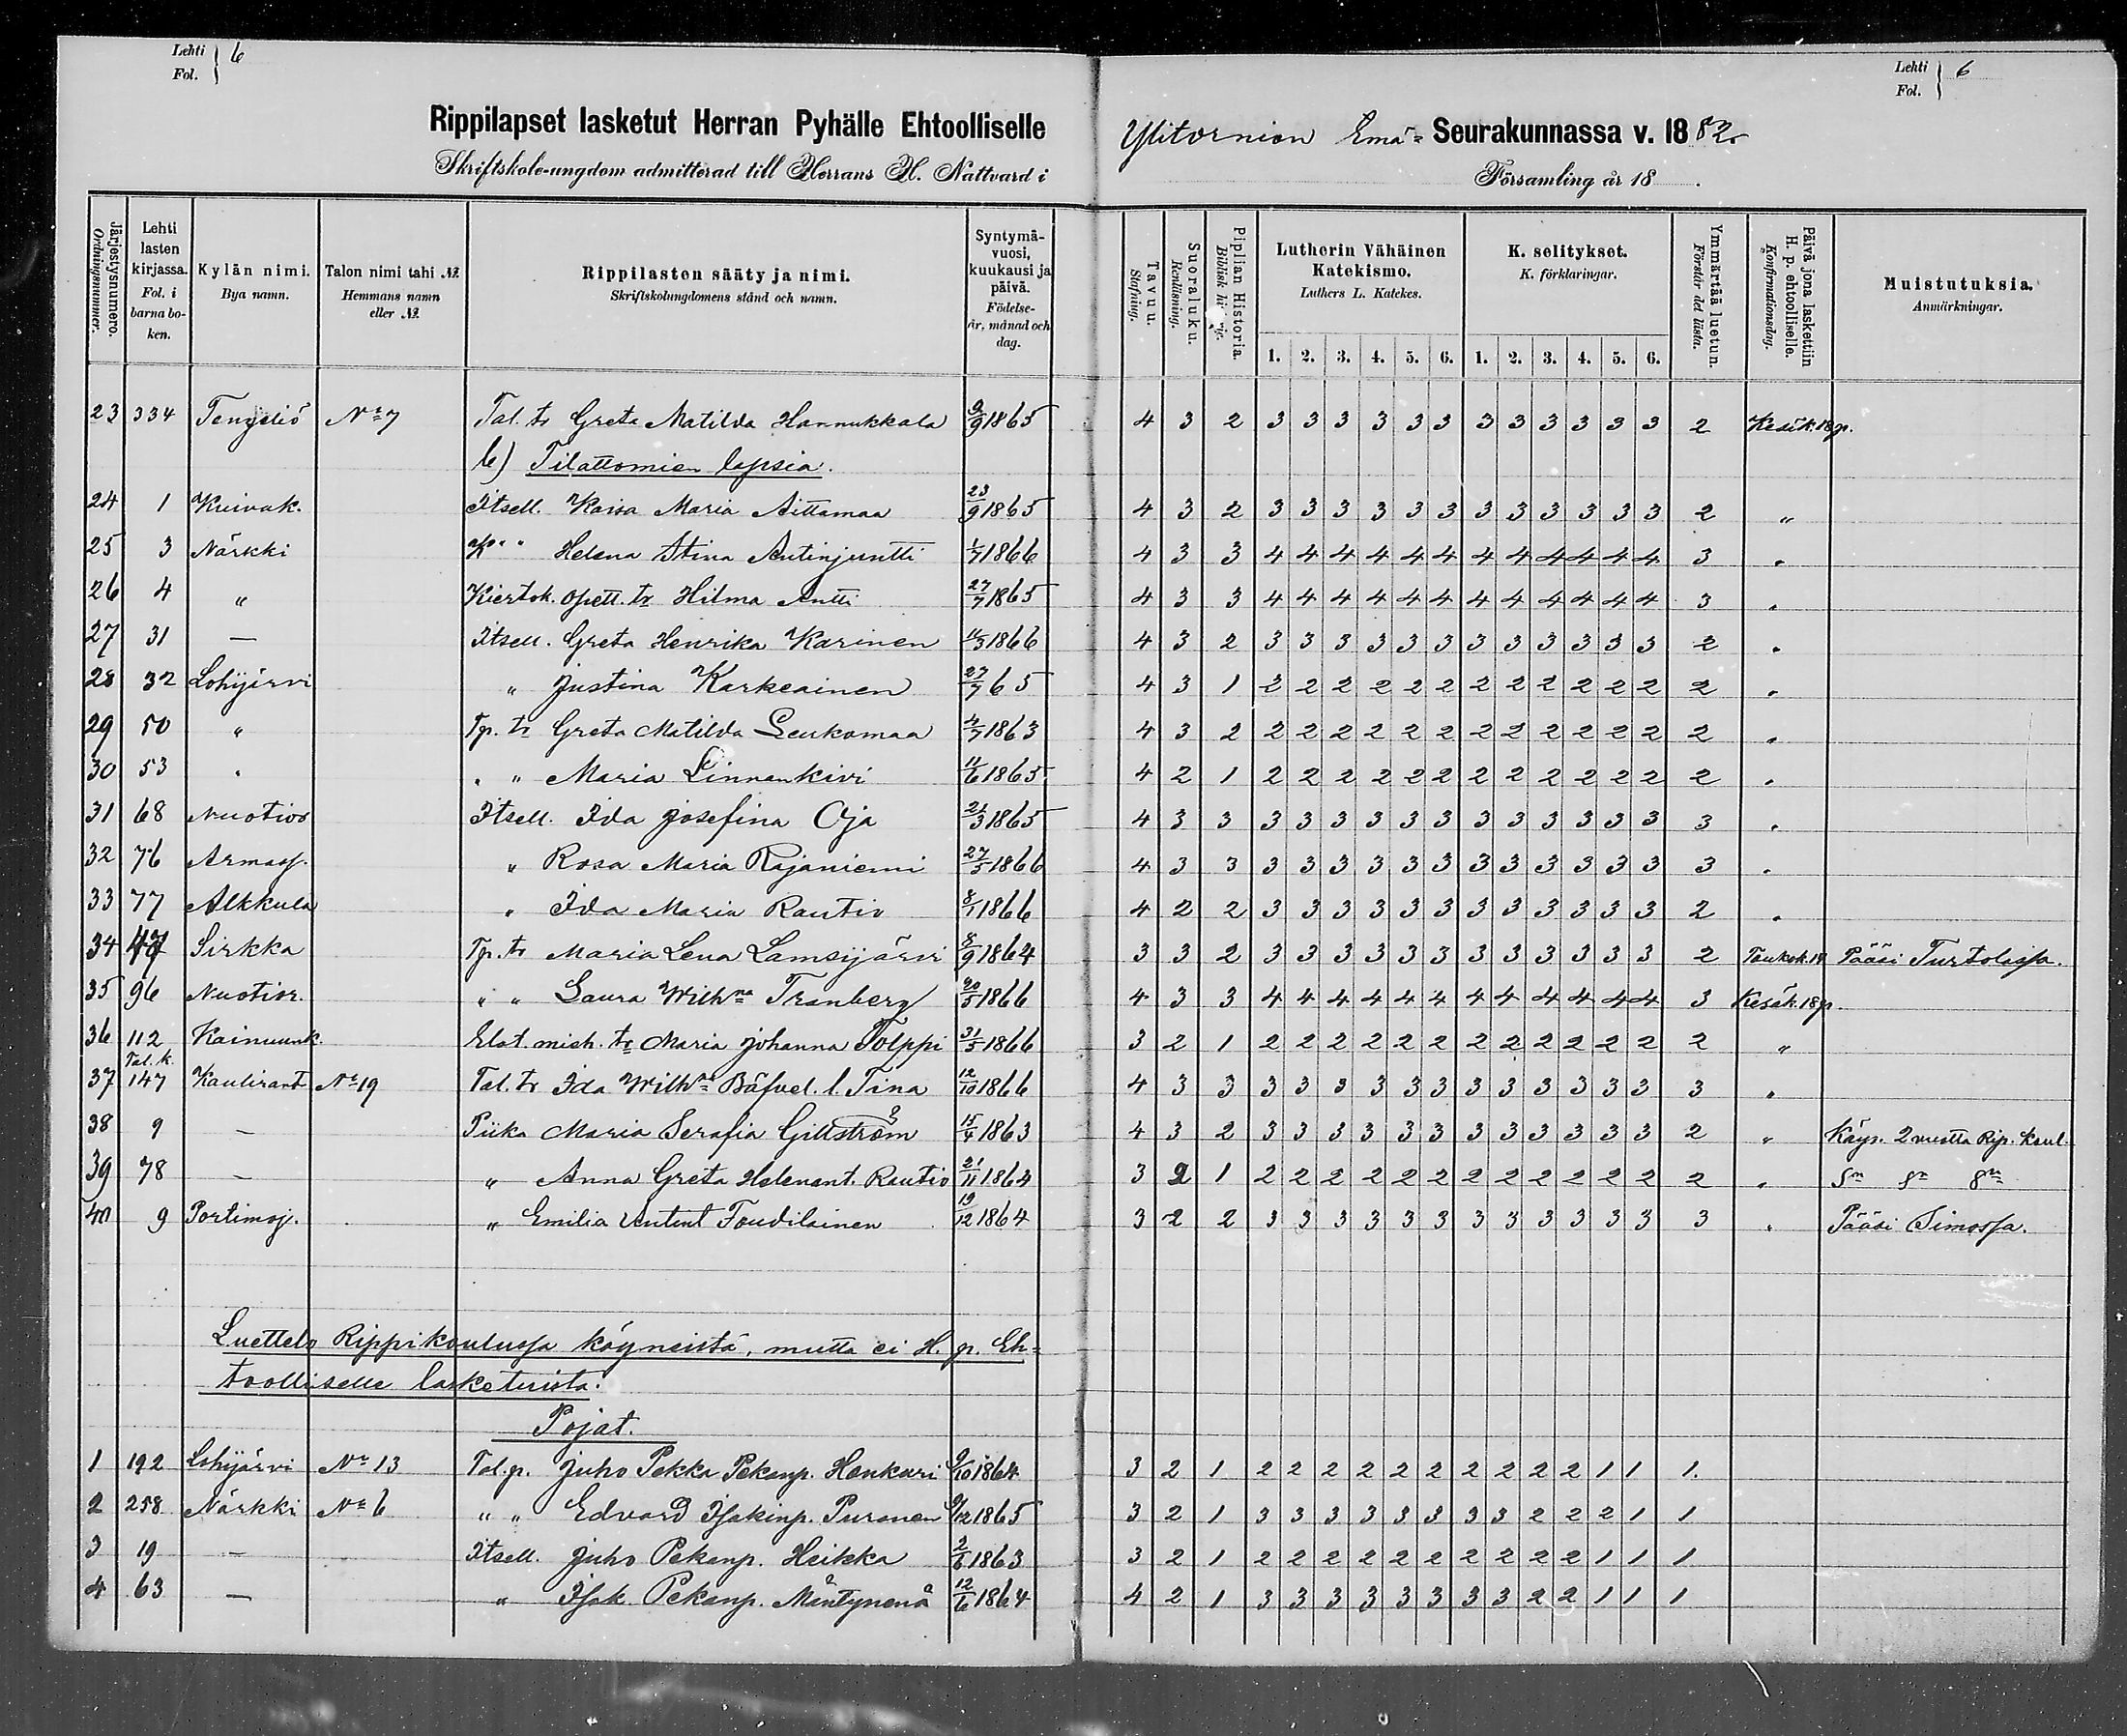 Lehti Fol. 6
Lehti Fol. 6
Rippilapset lasketut Herran Pyhälle Ehtoolliselle Ylitornion Emä- Seurakunnassa v. 1882.
Skriftskole-ungdom admitterad till Herrans H. Nattvard i Församling år 18 .
Järjestysnumero. Ordningsnummer. | Lehti lasten kirjassa. Fol. i barna boken. | Kylän nimi. Bya namn. | Talon nimi tahi №. Hemmans namn eller №. | Rippilasten sääty ja nimi. Skriftskolungdomens stånd och namn. | Syntymävuosi, kuukausi ja päivä. Födelse-år, månad och dag. | Tavuu. Stafning. | Suoraluku. Renläsning. | Piplian Historia. Biblisk historie. | Lutherin Vähäinen Katekismo. Luthers L. Katekes. 1. 2. 3. 4. 5. 6. | K. selitykset. K. förklaringar. 1. 2. 3. 4. 5. 6. | Ymmärtää luetun. Förstår det lästa. | Päivä jona laskettiin H. p. ehtoolliselle. Konfirmationsdag. | Muistutuksia. Anmärkningar.
23 334 Tengeliö No 7 Tal. tr Greta Matilda Hannukkala 9/9 1865 4 3 2 3 3 3 3 3 3 3 3 3 3 3 3 2 Kesäk. 18 p.
b) Tilattomien lapsia.
24 1 Kuivak. Itsell. Kaisa Maria Aittamaa 23/9 1865 4 3 2 3 3 3 3 3 3 3 3 3 3 3 3 2 "
25 3 Närkki " Helena Stina Antinjuntti 1/7 1866 4 3 3 4 4 4 4 4 4 4 4 4 4 4 4 3 "
26 4 " Kiertok. opett. tr Hilma Antti 27/7 1865 4 3 3 4 4 4 4 4 4 4 4 4 4 4 4 3 "
27 31 — Itsell. Greta Henrika Karinen 11/3 1866 4 3 2 3 3 3 3 3 3 3 3 3 3 3 3 2 "
28 32 Lohijärvi " Justina Karkeainen 27/7 65 4 3 1 2 2 2 2 2 2 2 2 2 2 2 2 2 "
29 50 " Tp. tr Greta Matilda Leukomaa 4/7 1863 4 3 2 2 2 2 2 2 2 2 2 2 2 2 2 2 "
30 53 " " " Maria Linnankivi 11/6 1865 4 2 1 2 2 2 2 2 2 2 2 2 2 2 2 2 "
31 68 Nuotior Itsell. Ida Josefina Oja 21/3 1865 4 3 3 3 3 3 3 3 3 3 3 3 3 3 3 3 "
32 76 Armass. " Rosa Maria Rajaniemi 27/5 1866 4 3 3 3 3 3 3 3 3 3 3 3 3 3 3 3 "
33 77 Alkkula " Ida Maria Rautio 8/1 1866 4 2 2 3 3 3 3 3 3 3 3 3 3 3 3 2 "
34 Sirkka Tp. tr Maria Lena Lamsijärvi 8/9 1864 3 3 2 3 3 3 3 3 3 3 3 3 3 3 3 2 Toukok. Pääsi Turtolassa.
35 96 Nuotior. " " Laura Wilhna Tranberg 20/5 1866 4 3 3 4 4 4 4 4 4 4 4 4 4 4 4 3 Kesäk. 18 p.
36 112 Kainuunk. Elat. mieh. tr Maria Johanna Tolppi 31/5 1866 3 2 1 2 2 2 2 2 2 2 2 2 2 2 2 2 "
37 Tal. k. 147 Kaulirant No 19 Tal. tr Ida Wilhna Bäfvel. l. Tina 12/10 1866 4 3 3 3 3 3 3 3 3 3 3 3 3 3 3 3 "
38 9 — Piika Maria Serafia Gillström 15/4 1863 4 3 2 3 3 3 3 3 3 3 3 3 3 3 3 2 " Käyn. 2 vuotta Rip. koul.
39 78 — " Anna Greta Helenant. Rautio 21/11 1864 3 2 1 2 2 2 2 2 2 2 2 2 2 2 2 2 "
40 9 Portimoj. " Emilia Antint Foudilainen 19/12 1864 3 2 2 3 3 3 3 3 3 3 3 3 3 3 3 3 " Pääsi Simossa.
Luettelo Rippikoulussa käyneistä, mutta ei H. p. Eh=
toolliselle lasketuista.
Pojat.
1 192 Lohijärvi No 13 Tal. p. Juho Pekka Pekanp. Honkuri 9/10 1864 3 2 1 2 2 2 2 2 2 2 2 2 2 1 1 1.
2 258 Närkki No 6 " " Edvard Isakinp. Puranen 9/12 1865 3 2 1 3 3 3 3 3 3 3 3 2 2 2 1 1
3 19 — Itsell. Juho Pekanp. Heikka 2/6 1863 3 2 1 2 2 2 2 2 2 2 2 2 2 1 1 1
4 63 — " Isak Pekanp. Mäntynenä 12/6 1864 4 2 1 3 3 3 3 3 3 3 3 2 2 1 1 1